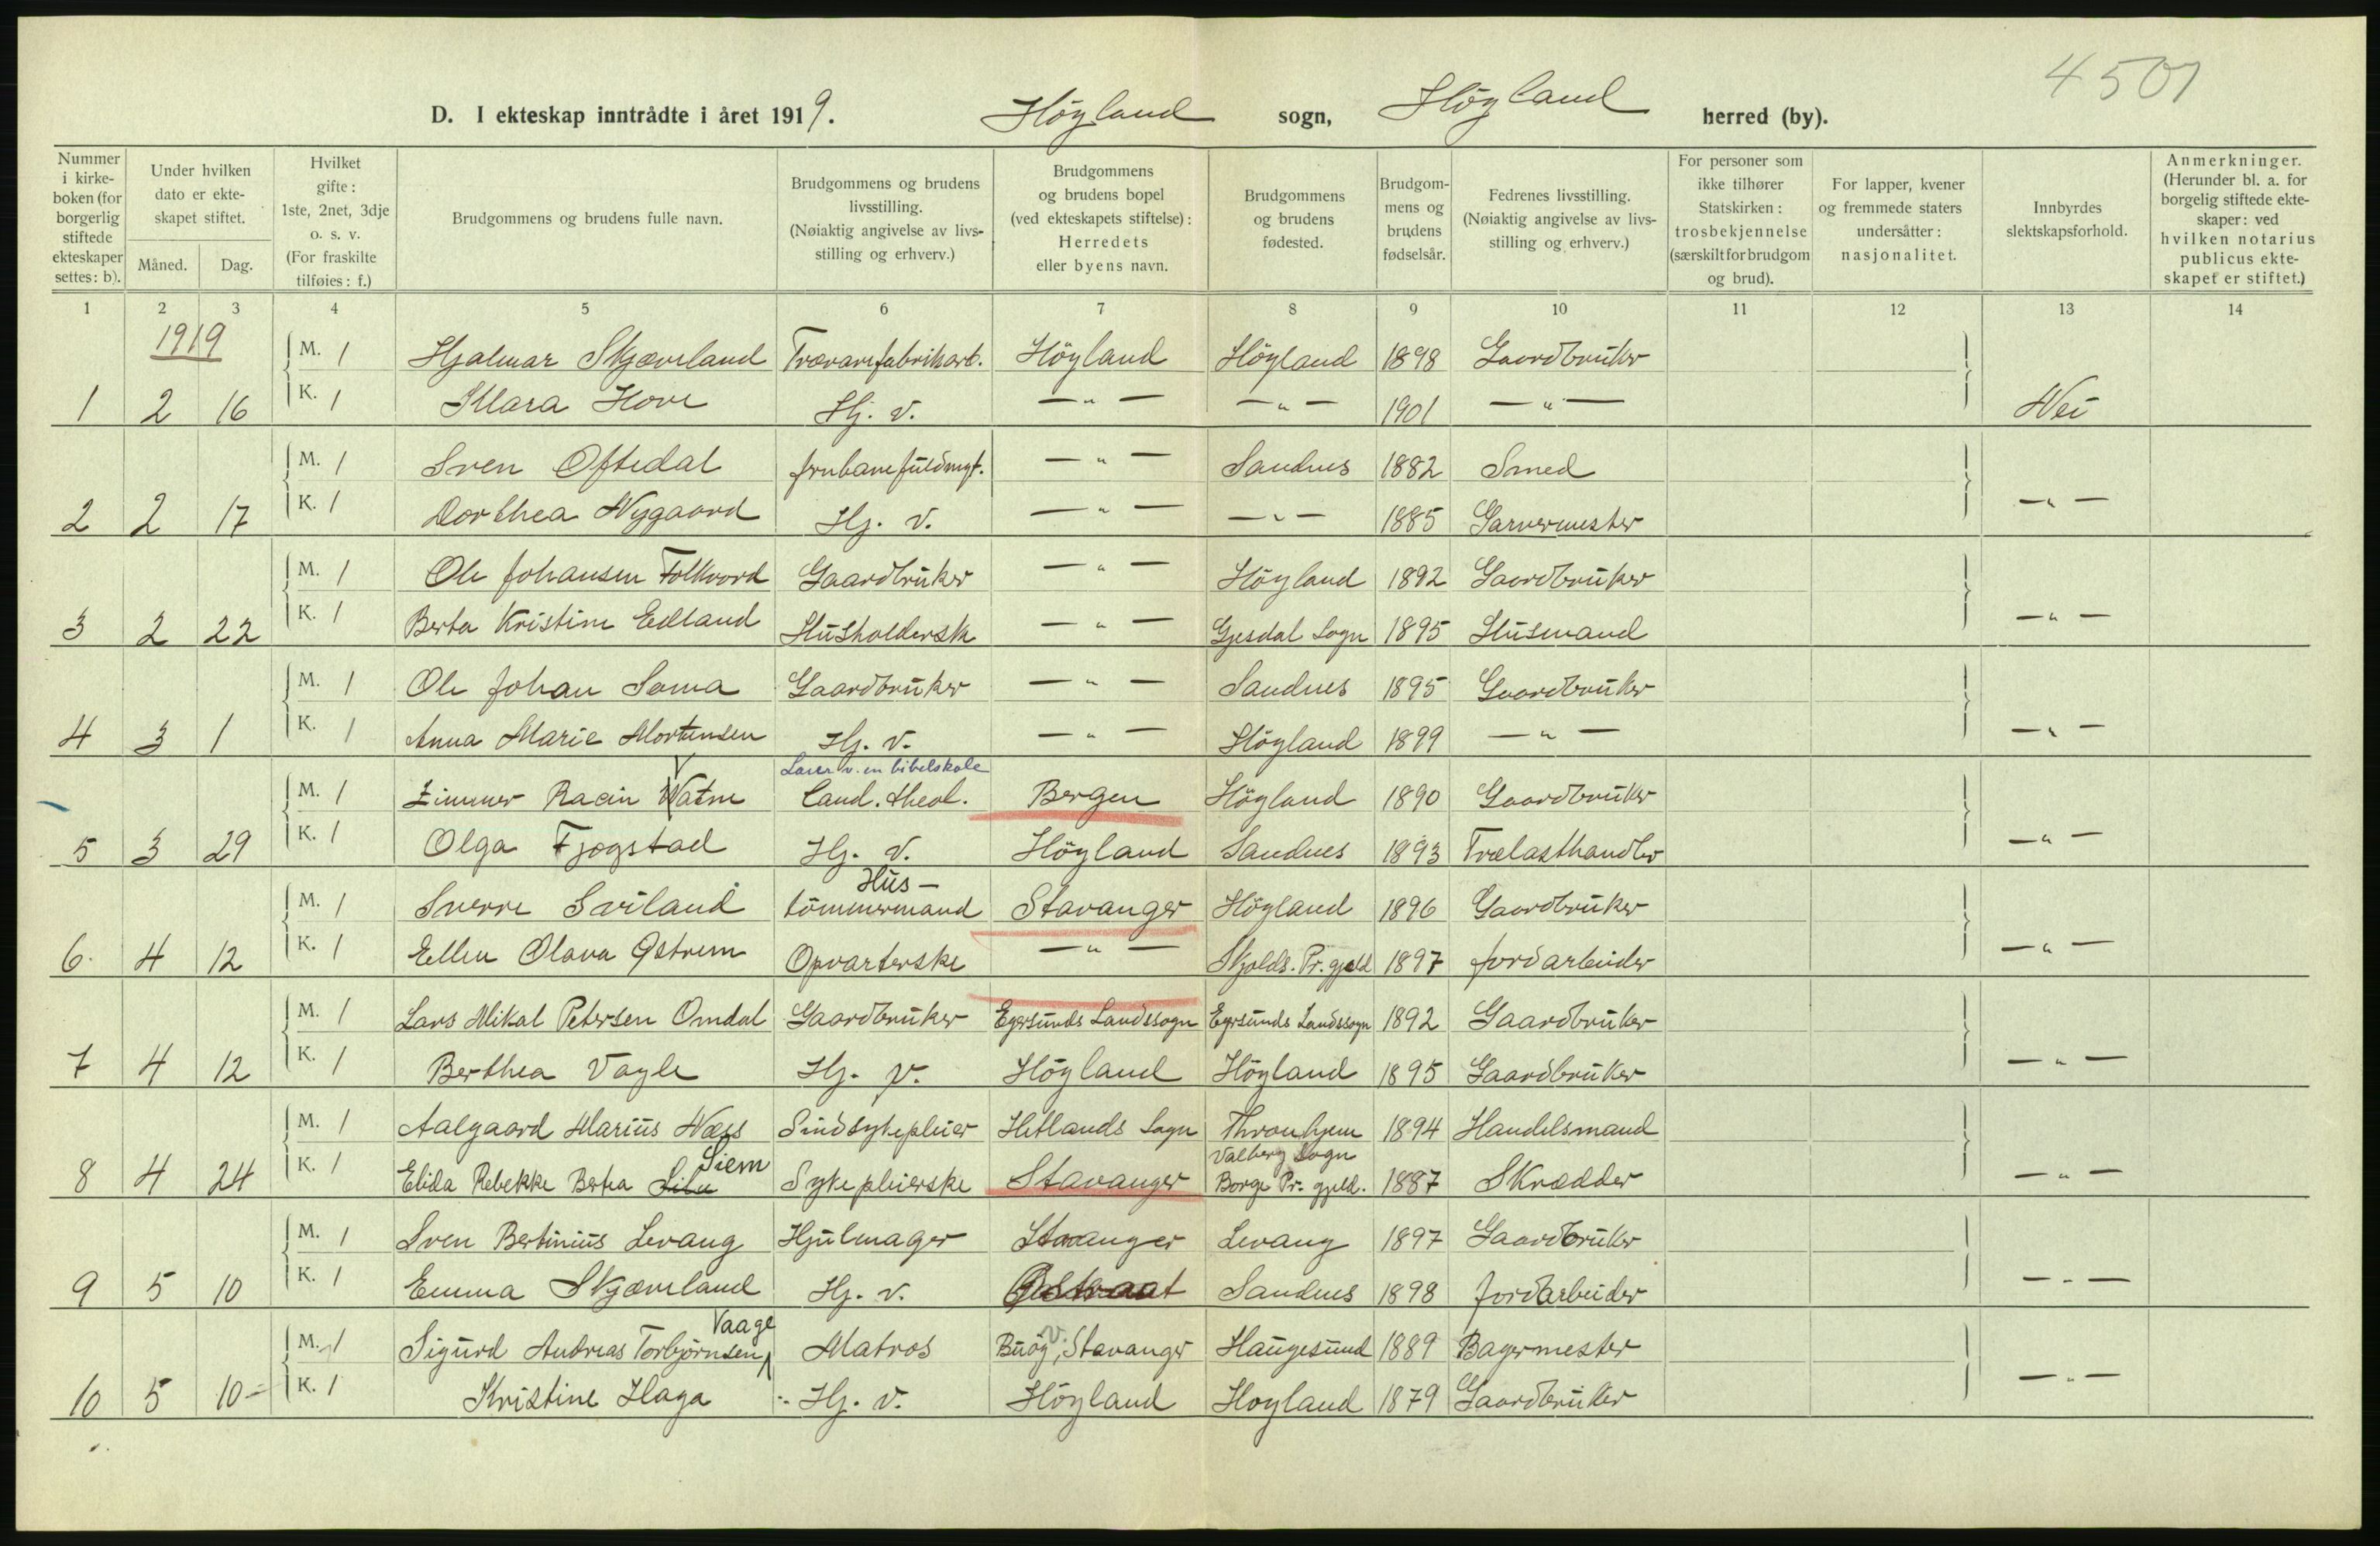 4501
D. I ekteskap inntrådte i året 1919. Höyland sogn, Höyland herred (by).
Nummer i kirkeboken (for borgerlig stiftede ekteskaper settes: b).
Under hvilken dato er ekteskapet stiftet.
Måned. Dag.
Hvilket gifte: 1ste, 2net, 3dje o. s. v. (For fraskilte tilføies: f.)
Brudgommens og brudens fulle navn.
Brudgommens og brudens livsstilling. (Nøiaktig angivelse av livsstilling og erhverv.)
Brudgommens og brudens bopel (ved ekteskapets stiftelse): Herredets eller byens navn.
Brudgommens og brudens fødested.
Brudgommens og brudens fødselsår.
Fedrenes livsstilling. (Nøiaktig angivelse av livsstilling og erhverv.)
For personer som ikke tilhører Statskirken: trosbekjennelse (særskilt for brudgom og brud).
For lapper, kvener og fremmede staters undersåtter: nasjonalitet.
Innbyrdes slektskapsforhold.
Anmerkninger. (Herunder bl. a. for borgelig stiftede ekteskaper: ved hvilken notarius publicus ekteskapet er stiftet.)
1 2 3 4 5 6 7 8 9 10 11 12 13 14
1919
M. 1 Hjalmar Skjæveland Trævarefabrikarb. Höyland Höyland 1898 Gaardbruker
1 2 16 K. 1 Klara Hove Hj. v. — " — — " — 1901 — " — Nei
M. 1 Sven Oftedal Jernbanefuldmgt. — " — Sandnes 1882 Smed
2 2 17 K. 1 Dorthea Nygaard Hj. v. — " — — " — 1885 Garvermester — " —
M. 1 Ole Johansen Folkvord Gaardbruker — " — Höyland 1892 Gaardbruker
3 2 22 K. 1 Berta Kristine Edland Husholdersk — " — Gjesdal Sogn 1895 Husmand — " —
M. 1 Ole Johan Soma Gaardbruker — " — Sandnes 1895 Gaardbruker
4 3 1 K. 1 Anna Marie Mortensen Hj. v. — " — Höyland 1899 — " — — " —
Lærer v. en bibelskole
M. 1 Zimmer Racin Watne Cand. theol. Bergen Höyland 1890 Gaardbruker
5 3 29 K. 1 Olga Fjogstad Hj. v. Höyland Sandnes 1893 Trælasthandler — " —
Hus-
M. 1 Sverre Sviland tömmermand Stavanger Höyland 1896 Gaardbruker
6. 4 12 K. 1 Ellen Olava Østrem Opvarterske — " — Skjolds. Pr. gjeld 1897 Jordarbeider — " —
M. 1 Lars Mikal Petersen Omdal Gaardbruker Egersunds Landssogn Egersunds Landssogn 1892 Gaardbruker
7 4 12 K. 1 Berthea Vagle Hj. v. Höyland Höyland 1895 Gaardbruker — " —
M. 1 Aalgaard Marius Næss Sindsykepleier Hetlands Sogn Thronhjem 1894 Handelsmand
Siem Valberg Sogn
8 4 24 K. 1 Elida Rebekke Berta Sykepleierske Stavanger Borge Pr. gjeld. 1887 Skrædder — " —
M. 1 Sven Bertinius Levang Hjulmager Stavanger Levang 1897 Gaardbruker
9 5 10 K. 1 Emma Skjæveland Hj. v. Sandnes 1898 Jordarbeider — " —
Vaage
M. 1 Sigurd Andreas Torbjørnsen Matros Buöy, v. Stavanger Haugesund 1889 Bagermester
10 5 10 K. 1 Kristine Haga Hj. v. Höyland Höyland 1879 Gaardbruker — " —